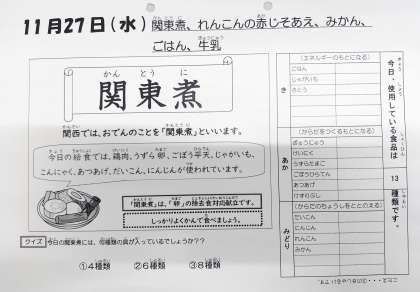 11月27日(水) 関東煮、れんこんの赤じそあえ、みかん、
ごはん、牛乳
かん とう に
関東煮
関西では、おでんのことを「関東煮」といいます。
今日の給食では、鶏肉、うずら卵、ごぼう平天、じゃがいも、
こんにゃく、あつあげ、だいこん、にんじんが使われています。
「関東煮」は、「卵」の除去食対応献立です。
しっかりよくかんで食べましょう。
クイズ 今日の関東煮には、何種類の具が入っているでしょうか??
①4種類 ②6種類 ③8種類
今日、使用している食品は
13
種類です。
き
(エネルギーのもとになる)
ごはん
じゃがいも
さとう
あか
(からだをつくるもとになる)
ぎゅうにゅう
けいにく
うずらたまご
ごぼうひらてん
あつあげ
けずりぶし
みどり
(からだのちょうしをととのえる)
だいこん
にんじん
れんこん
みかん